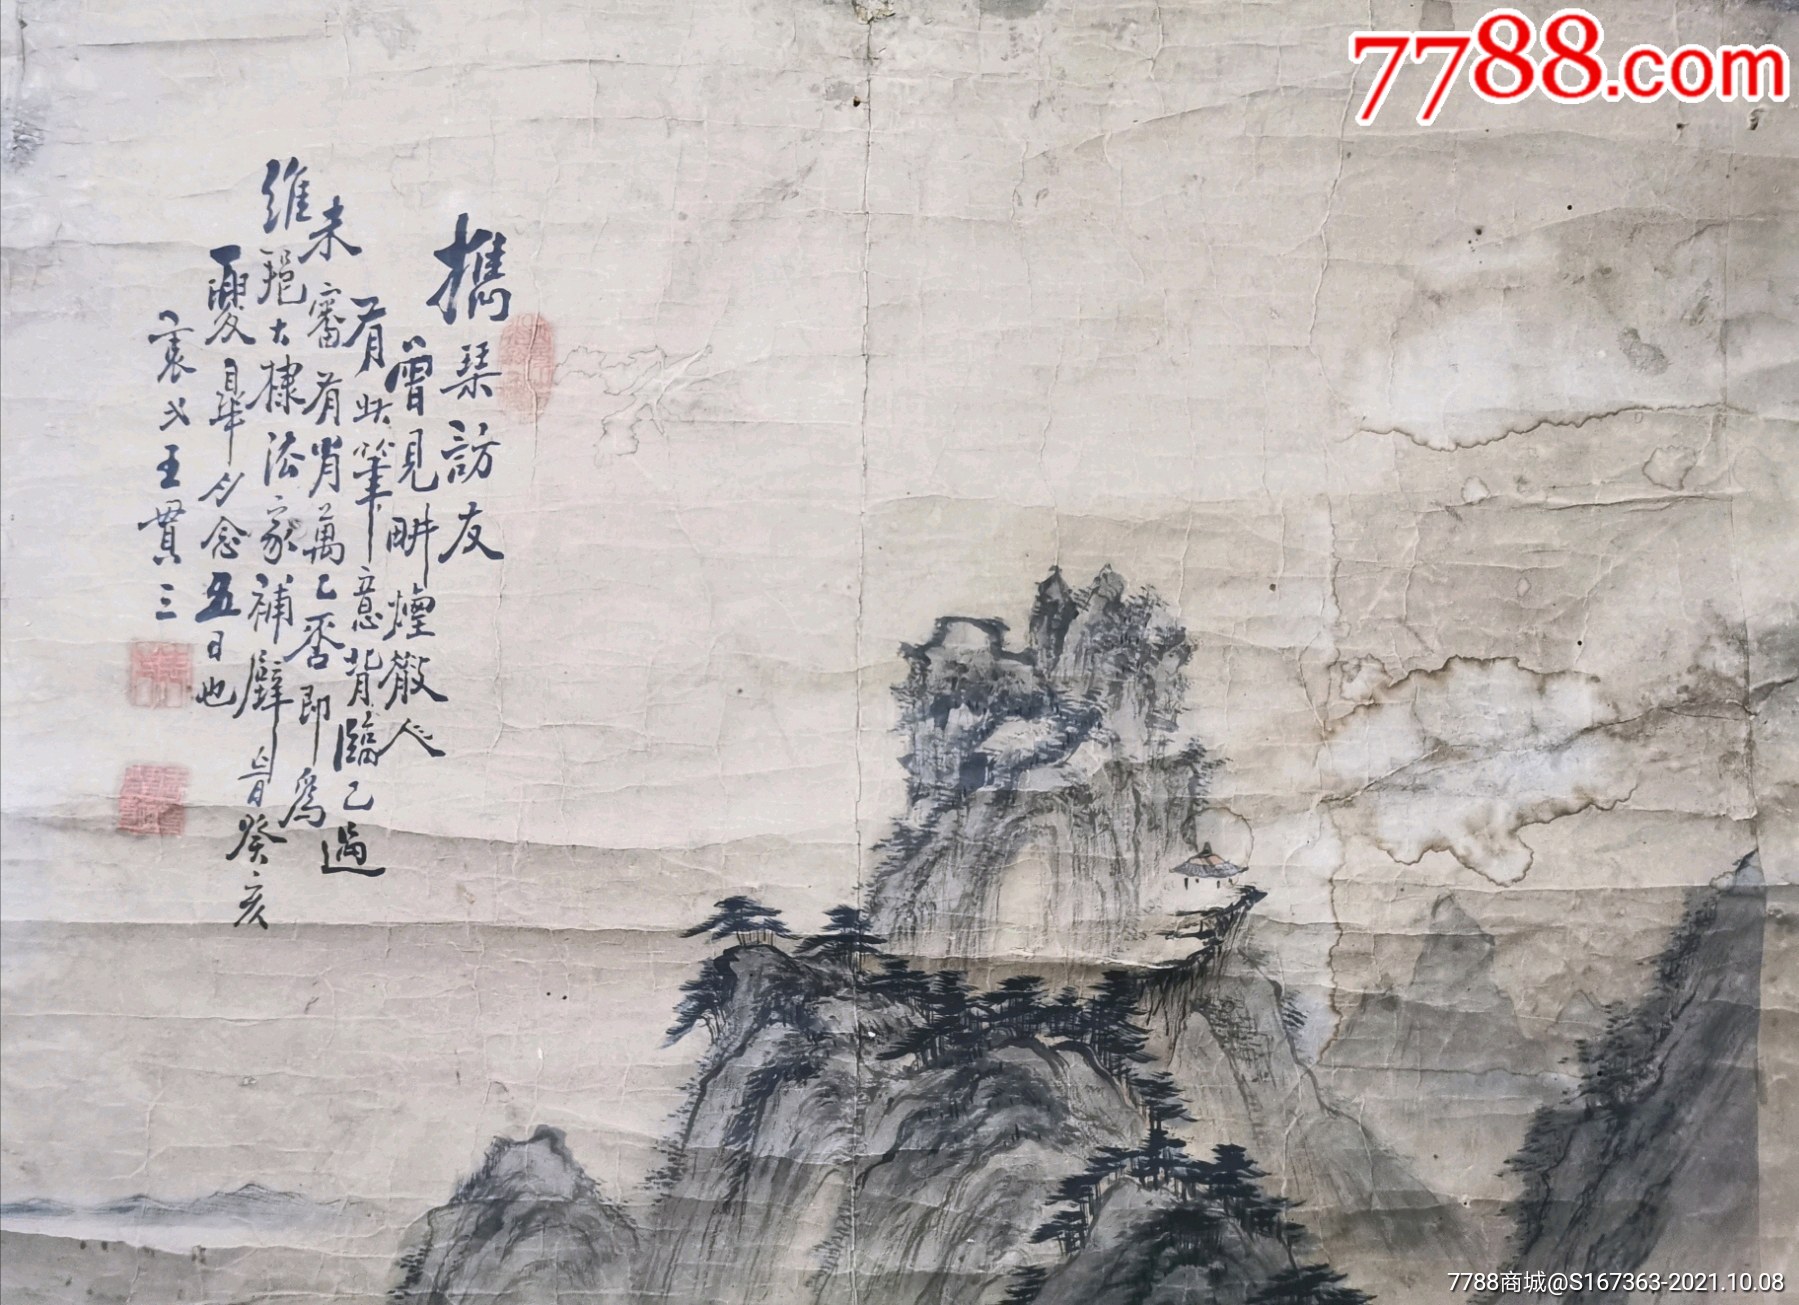 攜琹訪友
曾見畊煙散人
有此筆意背臨已過
未審有肖萬乙否即為
維艳大棣法家補壁旹癸亥
夏皋月念五日也
襄弍王貫三
7788.com
7788商城@S167363-2021.10.08